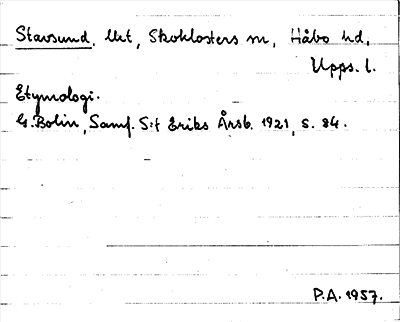 Stavsund, Ut, Skoklosters sn, Håbo hd,
Upps. l.
Etymologi.
G. Bolin, Samf. S:t Eriks Årsb. 1921, s. 84.
P.A. 1957.